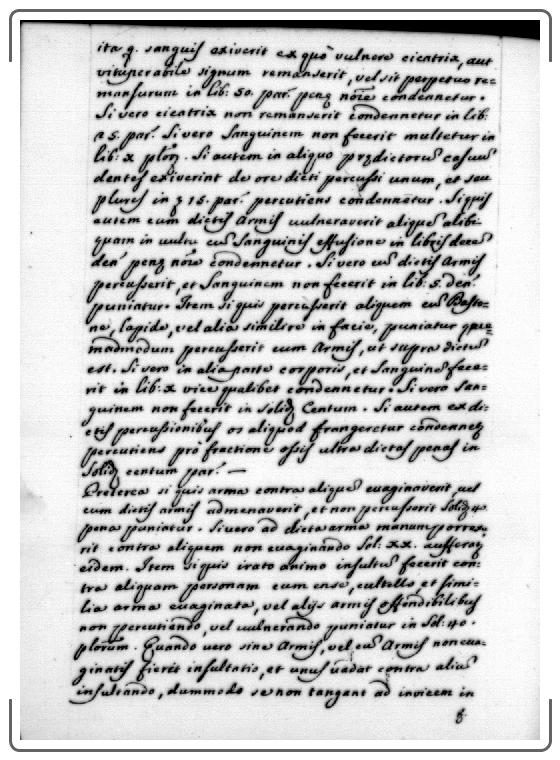 ita q. sanguis exiverit ex quo vulnere cicatrix, aut
vituperabile signum remanserit, vel sit perpetuo re-
mansurum in lib: 50. par. penę nōīe condennetur.
Si vero cicatrix non remanserit condennetur in lib:
25. par. Si vero Sanguinem non fecerit multetur in
lib: X Si autem in aliquo prędictorū casuū
dentes exiverint de ore dicti percussi unum, et seu
plures in 15. par. percutiens condennetur. Siquis
autem cum dictis Armis vulneraverit aliquē alibi
quam in vultu cū Sanguinis effusione in libris decē
den. penę nōīe condennetur. Si vero cū dictis Armis
percusserit, et Sanguinem non fecerit in lib: 5. den.
puniatur. Item si quis percusserit aliquem cū Basto-
ne, lapide, vel alia simili re in facie, puniatur que-
madmodum percusserit cum Armis, ut supra dictū
est. Si vero in alia parte corporis, et Sanguinē fece-
rit in lib: X vice qualibet condennetur. Si vero San-
guinem non fecerit in Solid. Centum. Si autem ex di-
ctis percussionibus os aliquod frangeretur
percutiens pro fractione ossis ultra dictas penas in
Solid. centum par. —
Preterea si quis arma contra aliquē evaginaverit, vel
cum dictis armis admenaverit, et non percusserit Solid.
pena puniatur. Si vero ad dicta arma manum porrexe-
rit contra aliquem non evaginando Sol: XX.
eidem. Item si quis irato animo insultū fecerit con-
tra aliquam personam cum ense, cultello, et simi-
lia arma evaginata, vel alijs armis offendibilibus
non percutiendo, vel vulnerando puniatur in Sol: 40.
plorum. Quando vero sine Armis, vel cū Armis non eva-
ginatis fierit insultatio, et unus vadat contra aliū
insultando, dummodo se non tangant ad invicem in